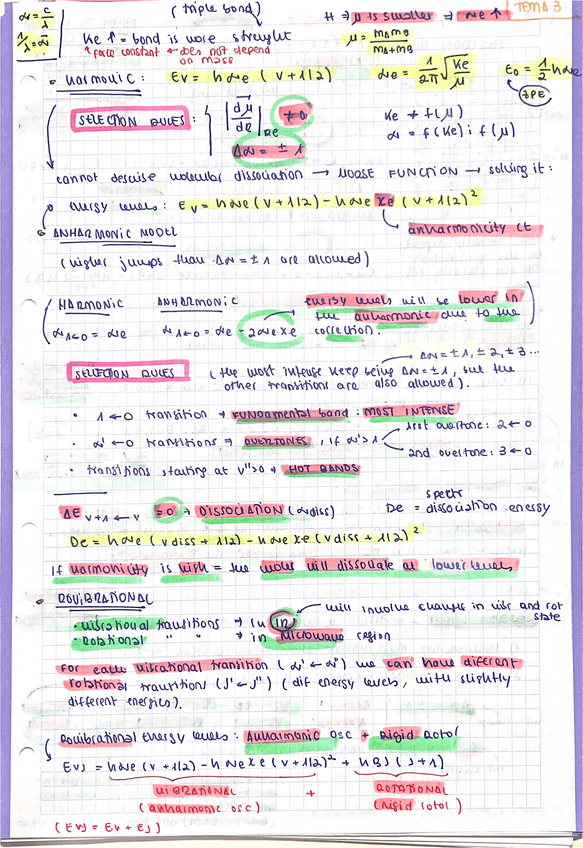 ν = c/λ
1/λ = ν̄
(triple bond)
H → μ is smaller → νe ↑
TEMA 3
Ke ↑ = bond is more strenght
↑ force constant ← does not depend on mass
μ = mA mB / mA + mB
• HARMONIC: Ev = hνe (v + 1/2)
νe = 1/2π √Ke/μ
E0 = 1/2 hνe
ZPE
SELECTION RULES: { |dμ/dR|Re ≠ 0
Δν = ± 1
Ke ≠ f(μ)
ν = f(Ke) i f(μ)
cannot descrise molecular dissociation → MORSE FUNCTION → solving it:
energy levels: Ev = hνe (v + 1/2) - hνe xe (v + 1/2)²
anharmonicity ct
• ANHARMONIC MODEL
(higher jumps than Δν = ± 1 are allowed)
HARMONIC ANHARMONIC
energy levels will be lower in the anharmonic due to the correction.
ν1←0 = νe ν1←0 = νe - 2νe xe
Δν = ±1, ±2, ±3...
SELECTION RULES (the most intense keep being Δν = ±1, but the
other transitions are also allowed).
• 1←0 transition → FUNDAMENTAL band: MOST INTENSE
• ν' ←0 transitions → OVERTONES, if ν' > 1
1rst overtone: 2←0
2nd overtone: 3←0
• transitions starting at v''>0 → HOT BANDS
ΔE v+1←v = 0 → DISSOCIATION (νdiss)
spectr
De = dissociation energy
De = hνe (vdiss + 1/2) - hνe xe (vdiss + 1/2)²
If harmonicity is high = the molec will dissociate at lower levels
• ROVIBRATIONAL
• vibrational transitions → in IR
will involve changes in vibr and rot state
• Rotational " " → in Microwave region
For each vibrational transition (ν' ← ν'') we can have diferent
rotational transitions (J' ← J'') (dif energy levels, with slightly
different energies).
Rovibrational energy levels: Anharmonic osc + Rigid Rotor
EvJ = hνe (v + 1/2) - hνe xe (v + 1/2)² + hBJ (J + 1)
VIBRATIONAL
(anharmonic osc)
+
ROTATIONAL
(rigid rotor)
(EvJ = Ev + EJ)